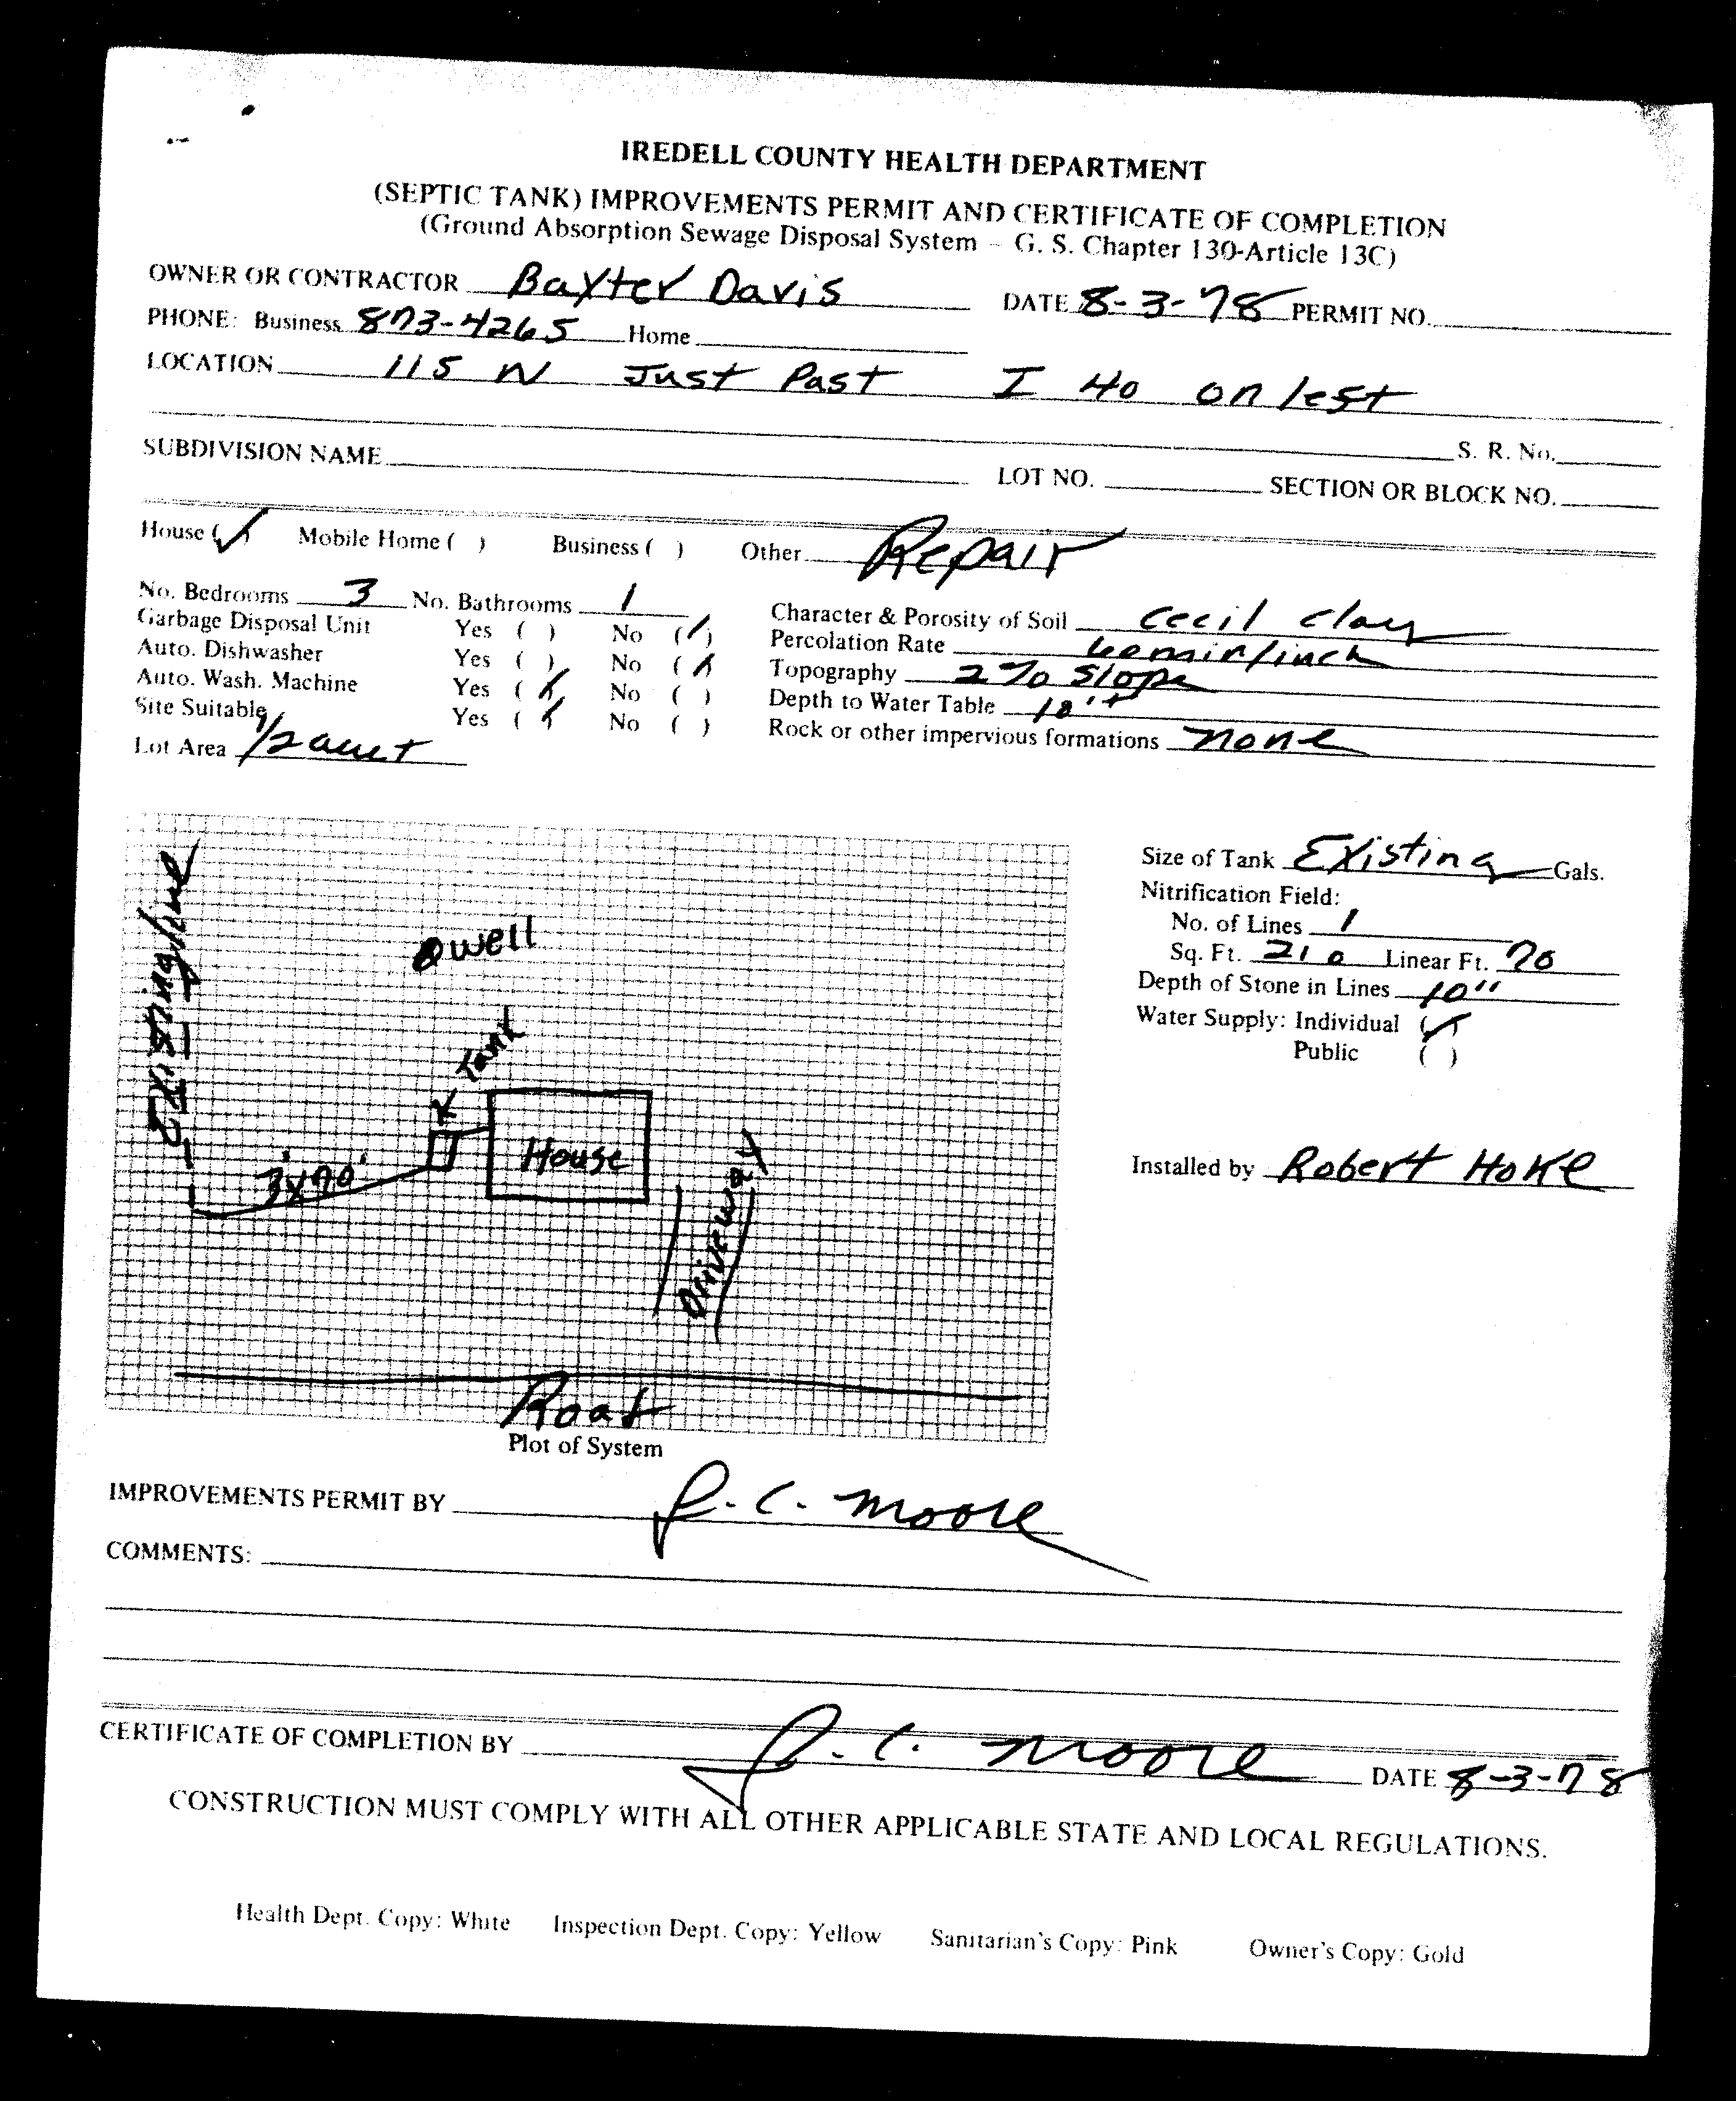 IREDELL COUNTY HEALTH DEPARTMENT
(SEPTIC TANK) IMPROVEMENTS PERMIT AND CERTIFICATE OF COMPLETION
(Ground Absorption Sewage Disposal System – G. S. Chapter 130-Article 13C)
OWNER OR CONTRACTOR Baxter Davis DATE 8-3-78 PERMIT NO.
PHONE: Business 873-4265 Home
LOCATION 115 N Just Past I 40 on left
S. R. No.
SUBDIVISION NAME LOT NO. SECTION OR BLOCK NO.
House (✓) Mobile Home ( ) Business ( ) Other Repair
No. Bedrooms 3 No. Bathrooms 1
Garbage Disposal Unit Yes ( ) No (✓)
Auto. Dishwasher Yes ( ) No (✓)
Auto. Wash. Machine Yes (✓) No ( )
Site Suitable Yes (✓) No ( )
Lot Area 1/2 acre +
Character & Porosity of Soil Cecil clay
Percolation Rate 60 min/inch
Topography 2% Slope
Depth to Water Table 10'+
Rock or other impervious formations none
Existing line
well
Tank
House
3'x70'
Driveway
Road
Plot of System
Size of Tank Existing Gals.
Nitrification Field:
No. of Lines 1
Sq. Ft. 210 Linear Ft. 70
Depth of Stone in Lines 10"
Water Supply: Individual (✓)
Public ( )
Installed by Robert Hoke
IMPROVEMENTS PERMIT BY J. C. Moore
COMMENTS:
CERTIFICATE OF COMPLETION BY J. C. Moore DATE 8-3-78
CONSTRUCTION MUST COMPLY WITH ALL OTHER APPLICABLE STATE AND LOCAL REGULATIONS.
Health Dept. Copy: White Inspection Dept. Copy: Yellow Sanitarian's Copy: Pink Owner's Copy: Gold